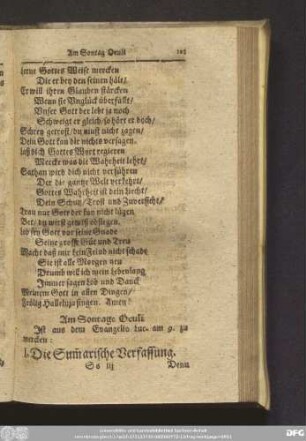 Am Sontag Oculi 105
Gottes Weise mercken
Die er bey den seinen hält/
Er will ihren Glauben stärcken
Wenn sie Unglück überfällt/
Unser Gott der lebt ja noch
Schweigt er gleich/ so hört er doch/
Schrey getrost/ du must nicht zagen/
Dein Gott kan dir nichts versagen.
laß dich Gottes Wort regieren
Mercke was die Wahrheit lehrt/
Sathan wird dich nicht verführen
Der die gantze Welt verkehrt/
Gottes Wahrheit ist dein Liecht/
Dein Schutz/ Trost und Zuversicht/
Trau nur Gott der kan nicht lügen
Bet/ du wirst gewiß obsiegen.
Gott vor seine Gnade
Seine grosse Güt und Treu
Macht daß mir kein Feind nicht schade
Sie ist alle Morgen neu
Drumb will ich mein lebenlang
Immer sagen lob und Danck
Meinem Gott in allen Dingen/
Frölig Halleluja singen. Amen!
Am Sontage Oculi
Ist aus dem Evangelio Luc. am 9. zu
mercken:
I. Die Sum̃arische Verfassung.
Ss iij Denn
DFG